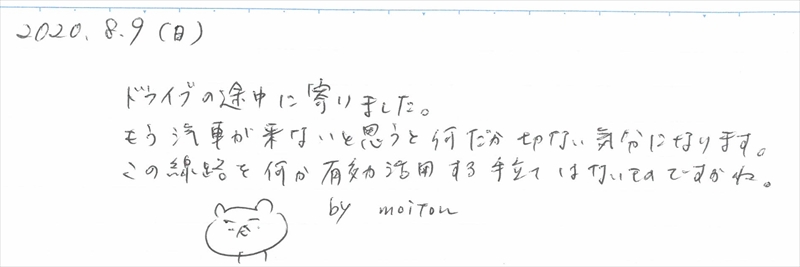 2020.8.9(日)
ドライブの途中に寄りました。
もう汽車が来ないと思うと何だか切ない気分になります。
この線路を何か有効活用する手立てはないものですかね。
by moiton